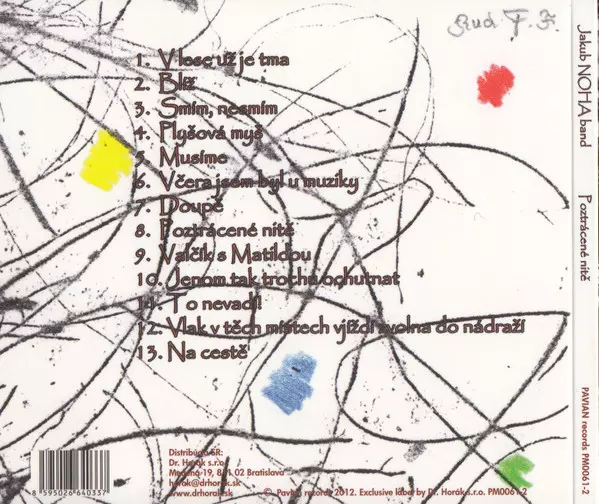 1. V lese už je tma
2. Blíž
3. Smím, nesmím
4. Plyšová myš
5. Musíme
6. Včera jsem byl u muziky
7. Doupě
8. Poztrácené nitě
9. Valčík s Matildou
10. Jenom tak trochu ochutnat
11. To nevadí!
12. Vlak v těch místech vjíždí zvolna do nádraží
13. Na cestě
Jakub NOHA band
Poztrácené nitě
PAVIAN records PM0061-2
Distribúcia SR:
Dr. Horák s.r.o.
19, 811 02 Bratislava
horak@drhorak.sk
www.drhorak.sk
© Pavian records 2012. Exclusive label by Dr. Horák s.r.o. PM0061-2
8 595026 640337